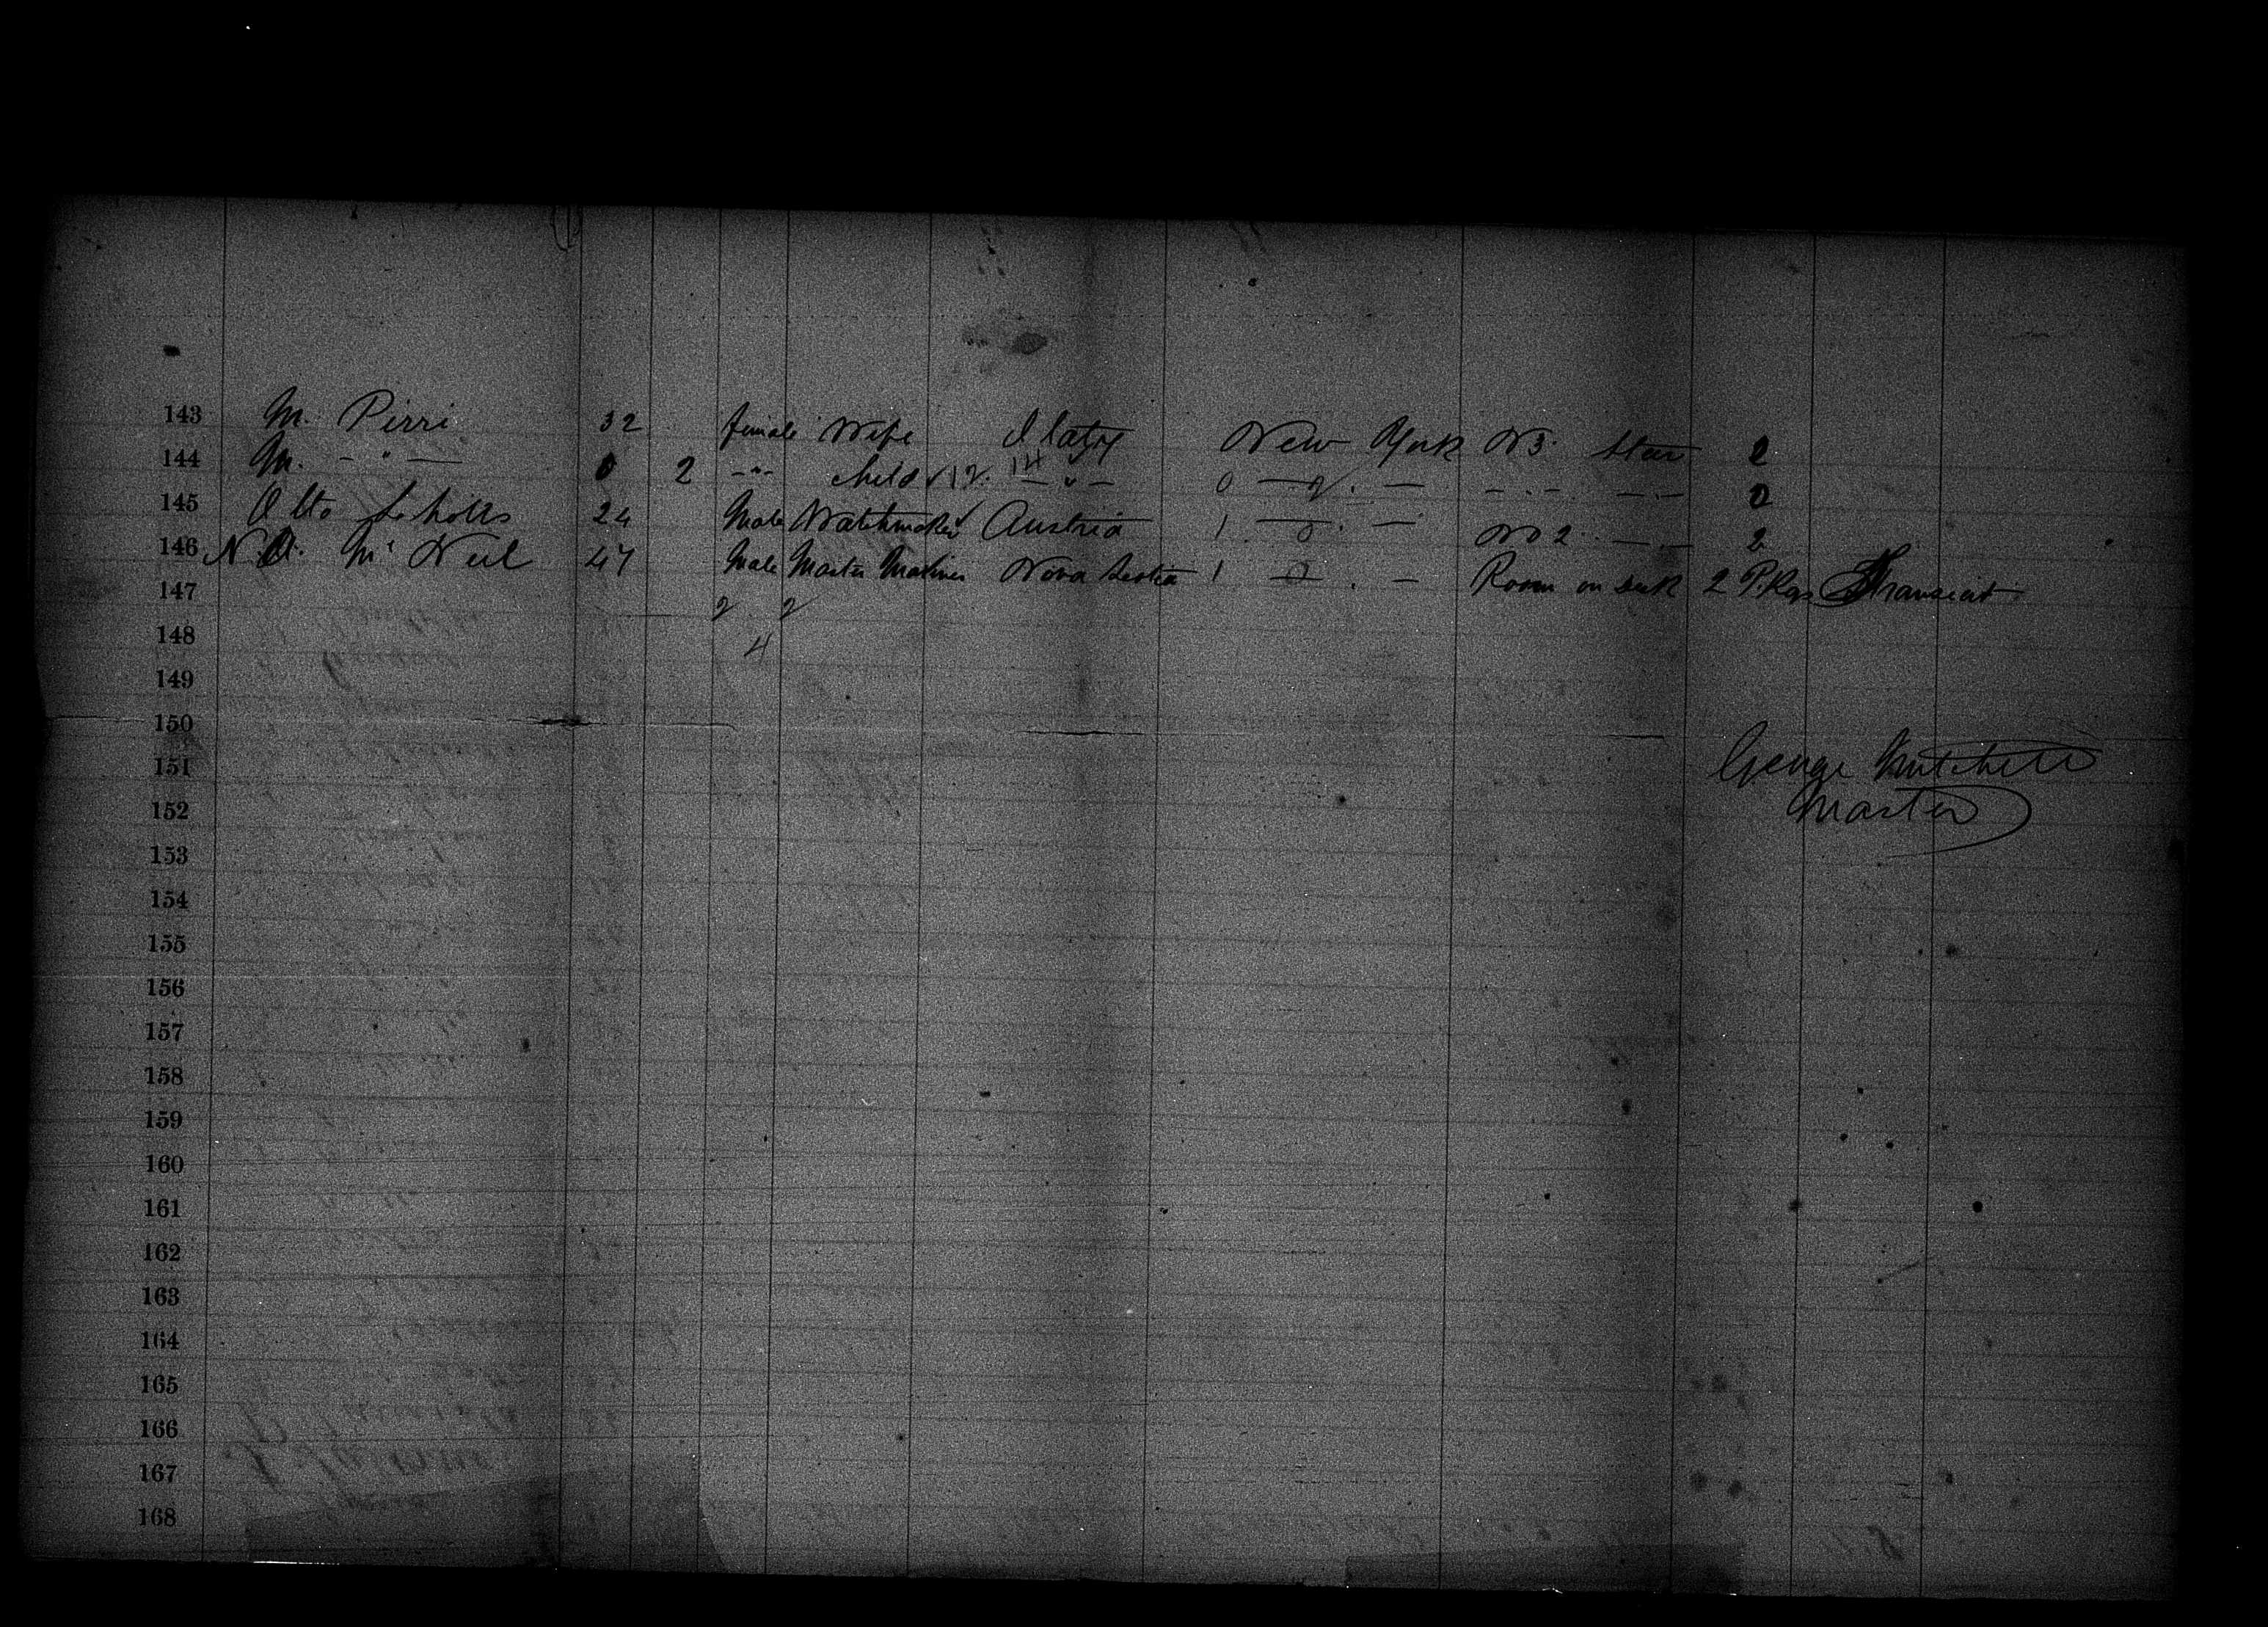 143 M. Pirri 32 female Wife Italy New York No 3 Star 2
144 M. - " - 0 2 - " - child 12 14 - " - 0 - " - - . - - . - 0
145 Otto Scholls 24 Male Watchmaker Austria 1 - " - No 2 - . - 2
146 N. A. Mc Neil 47 Male Master Mariner Nova Scotia 1 - " - Room on Deck 2 Pkgs Transient
147 2 2
148 4
149
150
151 George Mitchell
152 Master
153
154
155
156
157
158
159
160
161
162
163
164
165
166
167
168